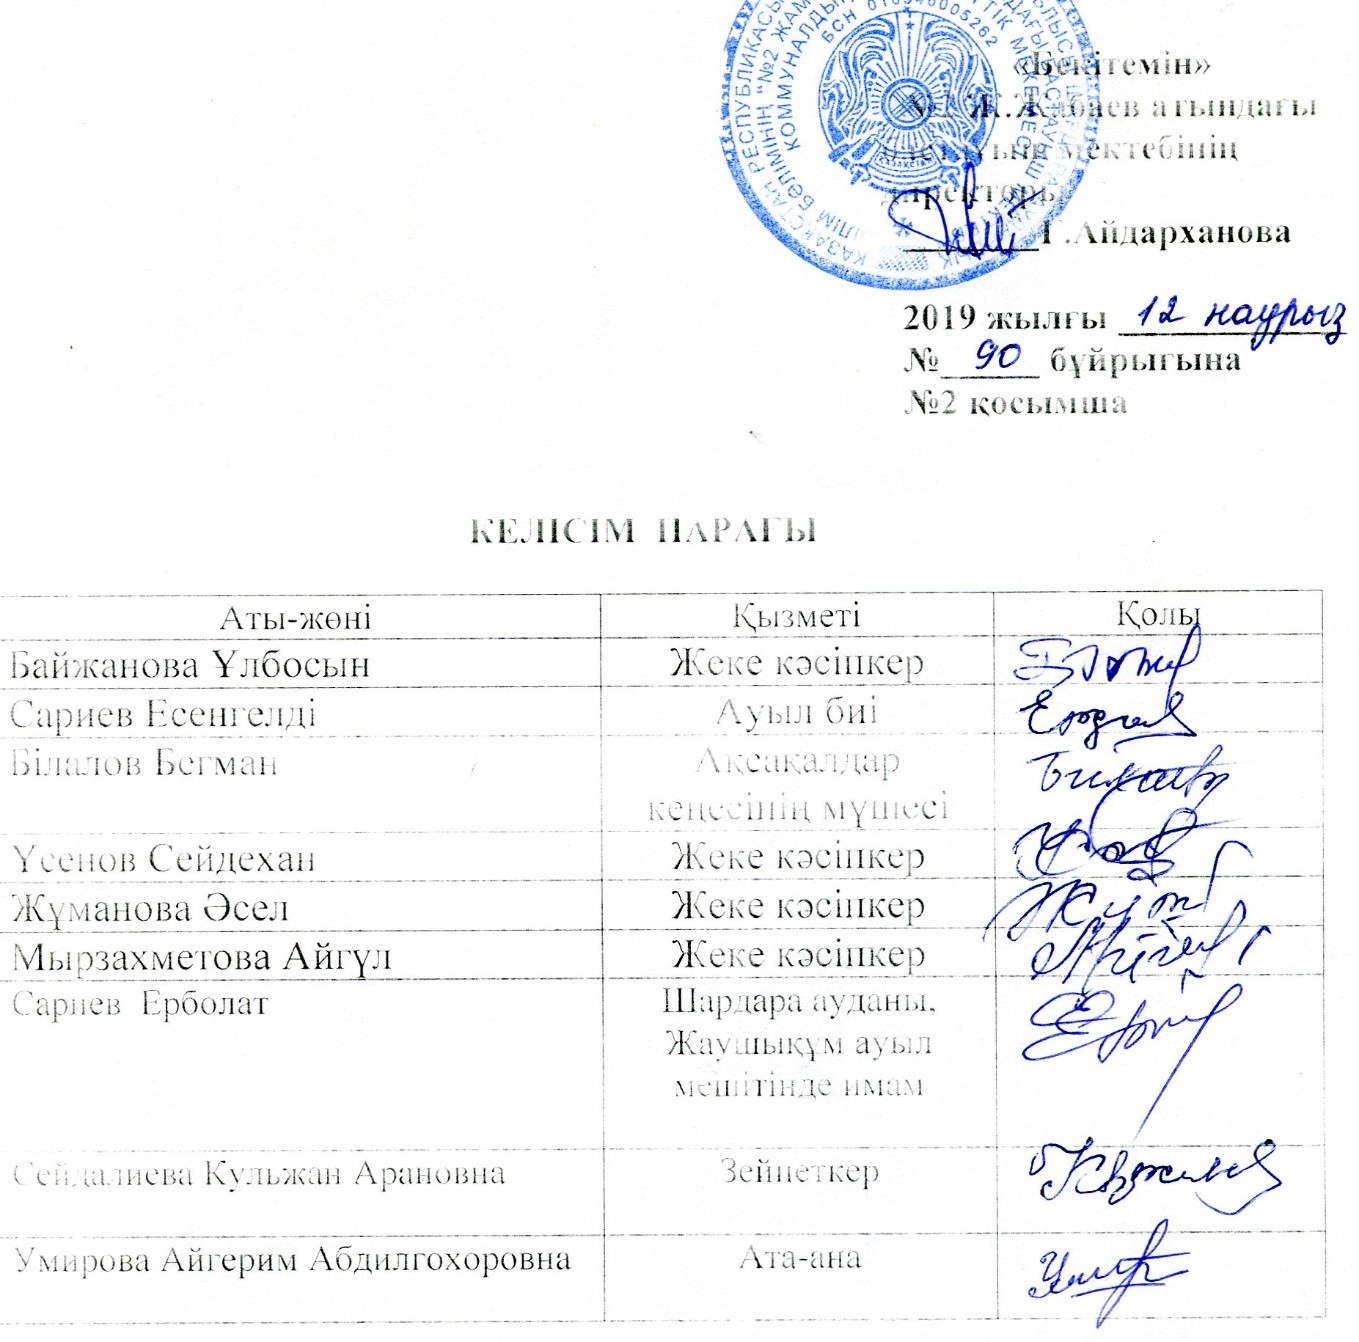 «Бекітемін»
№2 Ж.Жабаев атындағы
бастауыш мектебінің
директоры
Г.Айдарханова
2019 жылғы 12 наурыз
№ 90 бұйрығына
№2 қосымша
КЕЛІСІМ ПАРАҒЫ
Аты-жөні Қызметі Қолы
Байжанова Ұлбосын Жеке кәсіпкер
Сариев Есенгелді Ауыл биі
Білалов Бегман Ақсақалдар
кеңесінің мүшесі
Үсенов Сейдехан Жеке кәсіпкер
Жұманова Әсел Жеке кәсіпкер
Мырзахметова Айгүл Жеке кәсіпкер
Сариев Ерболат Шардара ауданы,
Жаушықұм ауыл
мешітінде имам
Сейдалиева Кульжан Арановна Зейнеткер
Умирова Айгерим Абдилгохоровна Ата-ана